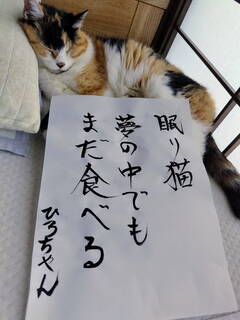 眠り猫
夢の中でも
まだ食べる
ひろちゃん